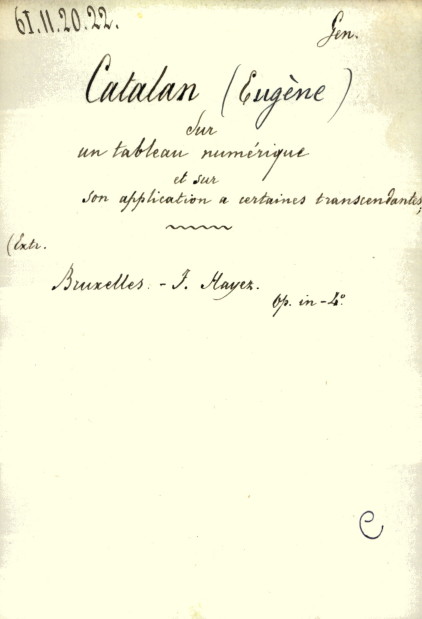 61.11.20.22.
Gen.
Catalan (Eugène)
Sur
un tableau numérique
et sur
son application a certaines transcendantes,
(Extr.
Bruxelles. - F. Hayez.
Op. in-4º.
C